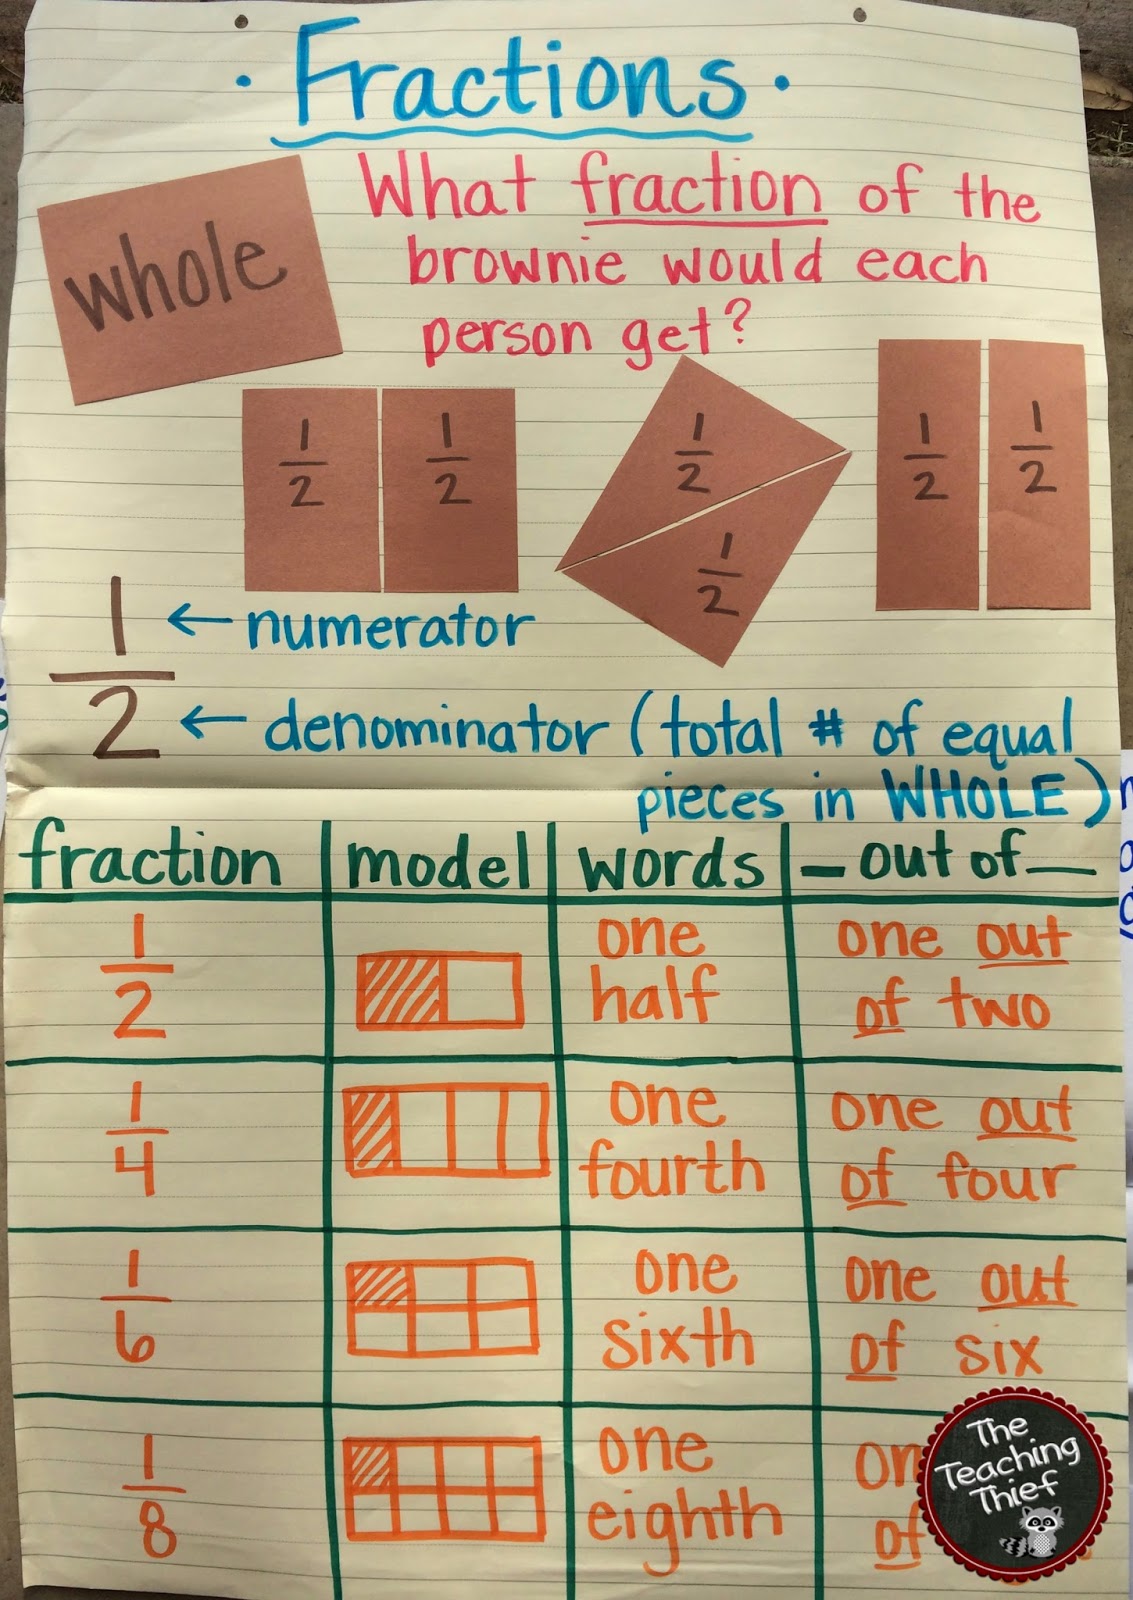 · Fractions ·
What fraction of the
brownie would each
person get?
whole
1/2 1/2
1/2
1/2
1/2 1/2
1/2
← numerator
← denominator (total # of equal
pieces in WHOLE)
fraction model words _ out of _
1/2 one half one out of two
1/4 one fourth one out of four
1/6 one sixth one out of six
1/8 one eighth of
The
Teaching
Thief